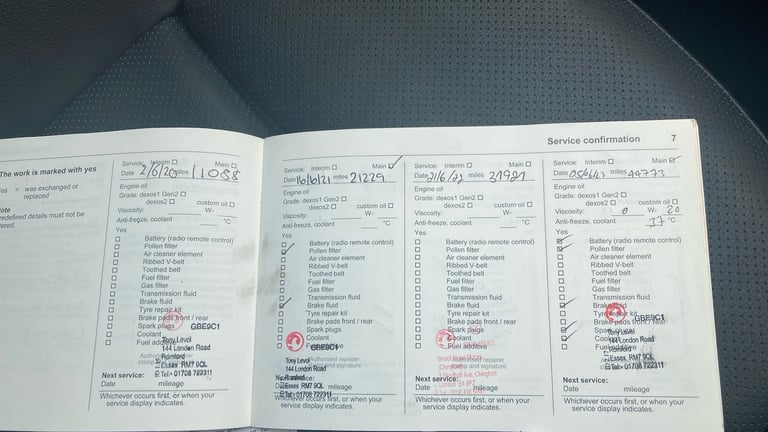 Service confirmation 7
The work is marked with yes
= was exchanged or
replaced
redefined details must not be
Service: Interim Main
Date 2/6/20 miles 11088
Engine oil
Grade: dexos1 Gen2
dexos2 custom oil
Viscosity: W-
Anti-freeze, coolant °C
Yes
Battery (radio remote control)
Pollen filter
Air cleaner element
Ribbed V-belt
Toothed belt
Fuel filter
Gas filter
Transmission fluid
Brake fluid
Tyre repair kit
Brake pads front / rear
Spark plugs
Coolant
Fuel additive
GBE9C1
Tony Level
144 London Road
Romford
Essex RM7 9QL
Tel:- 01708 722311
Next service:
Date mileage
Whichever occurs first, or when your
service display indicates.
Service: Interim Main ✓
Date 16/6/21 miles 21229
Engine oil
Grade: dexos1 Gen2
dexos2 custom oil
Viscosity: W-
Anti-freeze, coolant °C
Yes
Battery (radio remote control)
✓ Pollen filter
Air cleaner element
Ribbed V-belt
Toothed belt
Fuel filter
Gas filter
Transmission fluid
✓ Brake fluid
Tyre repair kit
Brake pads front / rear
Spark plugs
Coolant
GBE9C1
Tony Level
Authorised repairer
144 London Road
stamp and signature
Essex RM7 9QL
Tel:- 01708 722311
mileage
Whichever occurs first, or when your
service display indicates.
Service: Interim Main
Date 21/6/22 miles 31921
Engine oil
Grade: dexos1 Gen2
dexos2 custom oil
Viscosity: W-
Anti-freeze, coolant °C
Yes
Battery (radio remote control)
Pollen filter
Air cleaner element
Ribbed V-belt
Toothed belt
Fuel filter
Gas filter
Transmission fluid
Brake fluid
Tyre repair kit
Brake pads front / rear
Spark plugs
Coolant
Fuel additive
Authorised repairer
stamp and signature
Next service:
Date mileage
Whichever occurs first, or when your
service display indicates.
Service: Interim Main ✓
Date 05/6/23 miles 44773
Engine oil
Grade: dexos1 Gen2
dexos2 custom oil
Viscosity: 0 W- 20
Anti-freeze, coolant 37 °C
Yes
Battery (radio remote control)
✓ Pollen filter
Air cleaner element
Ribbed V-belt
Toothed belt
Fuel filter
Gas filter
Transmission fluid
✓ Brake fluid
Tyre repair kit
Brake pads front / rear
✓ Spark plugs
Coolant
Fuel additive
GBE9C1
Tony Level
144 London Road
Essex RM7 9QL
Tel:- 01708 722311
Next service:
Date mileage
Whichever occurs first, or when your
service display indicates.